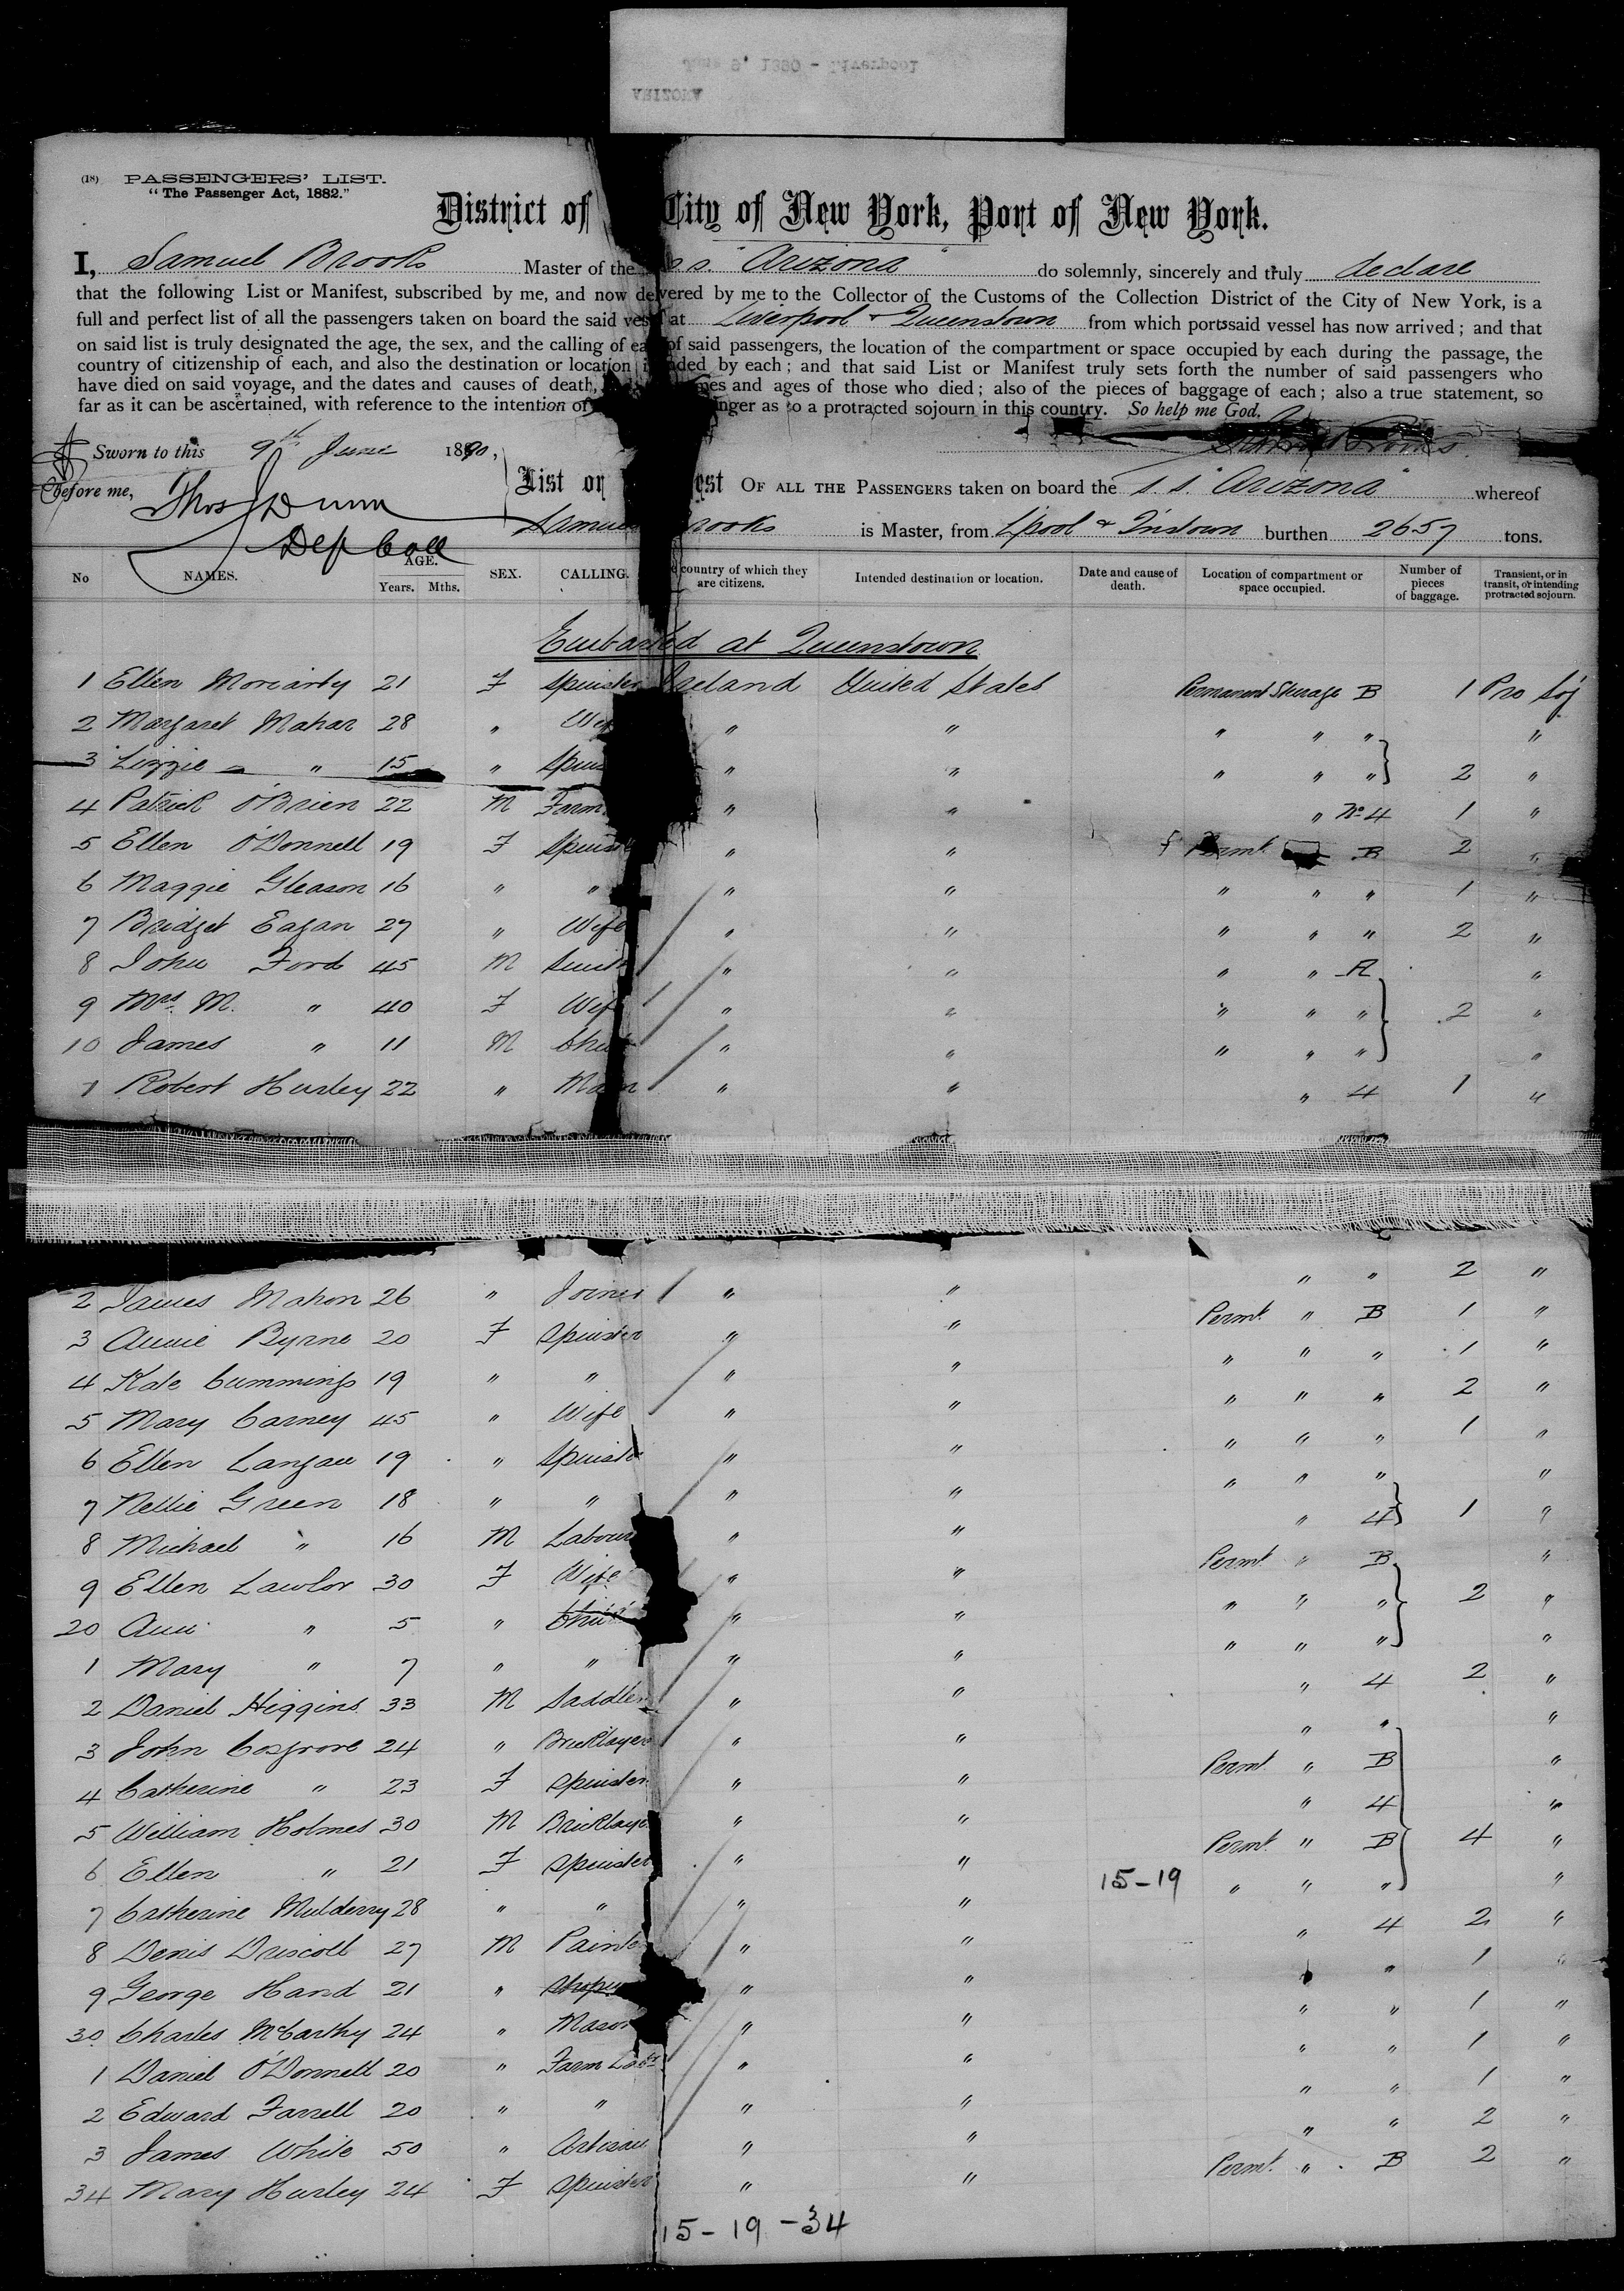 June 9, 1890 - Liverpool
ARIZONA
(18) PASSENGERS' LIST.
"The Passenger Act, 1882."
District of City of New York, Port of New York.
I, Samuel Brooks Master of the s.s. "Arizona" do solemnly, sincerely and truly declare
that the following List or Manifest, subscribed by me, and now delivered by me to the Collector of the Customs of the Collection District of the City of New York, is a
full and perfect list of all the passengers taken on board the said vessel at Liverpool & Queenstown from which ports said vessel has now arrived; and that
on said list is truly designated the age, the sex, and the calling of each of said passengers, the location of the compartment or space occupied by each during the passage, the
country of citizenship of each, and also the destination or location intended by each; and that said List or Manifest truly sets forth the number of said passengers who
have died on said voyage, and the dates and causes of death, names and ages of those who died; also of the pieces of baggage of each; also a true statement, so
far as it can be ascertained, with reference to the intention of passenger as to a protracted sojourn in this country. So help me God.
Sworn to this 9th June 1890,
before me,
Thos J Dunn
Dep Coll
List or Manifest OF ALL THE PASSENGERS taken on board the s.s. "Arizona" whereof
Samuel Brooks is Master, from L'pool & Q'nstown burthen 2657 tons.
No NAMES. AGE. Years. Mths. SEX. CALLING. country of which they are citizens. Intended destination or location. Date and cause of death. Location of compartment or space occupied. Number of pieces of baggage. Transient, or in transit, or intending protracted sojourn.
Embarked at Queenstown
1 Ellen Moriarty 21 F Spinster Ireland United States Permanent Steerage B 1 Pro Soj
2 Margaret Mahar 28 " Wife " " " " " "
3 Lizzie " 15 " Spins " " " " " 2 "
4 Patrick O'Brien 22 M Farm " " " No 4 1 "
5 Ellen O'Donnell 19 F Spinster " " Permt. B 2 "
6 Maggie Gleason 16 " " " " " " " 1 "
7 Bridget Eagan 27 " Wife " " " " " 2 "
8 John Ford 45 M Smith " " " " A "
9 Mrs. M. " 40 F Wife " " " " " 2 "
10 James " 11 M Child " " " " " "
1 Robert Hurley 22 " Mason " " " 4 1 "
2 James Mahon 26 " Joiner " " " " 2 "
3 Annie Byrne 20 F Spinster " " Permt. " B 1 "
4 Kate Cummings 19 " " " " " " " 1 "
5 Mary Carney 45 " Wife " " " " " 2 "
6 Ellen Langan 19 " Spinster " " " " " 1 "
7 Nellie Green 18 " " " " " " " "
8 Michael " 16 M Labourer " " " 4 1 "
9 Ellen Lawlor 30 F Wife " " Permt. " B "
20 Ann " 5 " Child " " " " " 2 "
1 Mary " 7 " " " " " " " "
2 Daniel Higgins 33 M Saddler " " " 4 2 "
3 John Cosgrove 24 " Bricklayer " " " " "
4 Catherine " 23 F Spinster " " Permt. " B "
5 William Holmes 30 M Bricklayer " " " 4 "
6 Ellen " 21 F Spinster " " Permt. " B 4 "
7 Catherine Mulderry 28 " " " " 15-19 " " " "
8 Denis Driscoll 27 M Painter " " " 4 2 "
9 George Hand 21 " " " " 1 "
30 Charles McCarthy 24 " Mason " " " " 1 "
1 Daniel O'Donnell 20 " Farm Labr " " " " 1 "
2 Edward Farrell 20 " " " " " " 1 "
3 James White 50 " Artisan " " " " 2 "
34 Mary Hurley 24 F Spinster " " Permt. " B 2 "
15-19-34